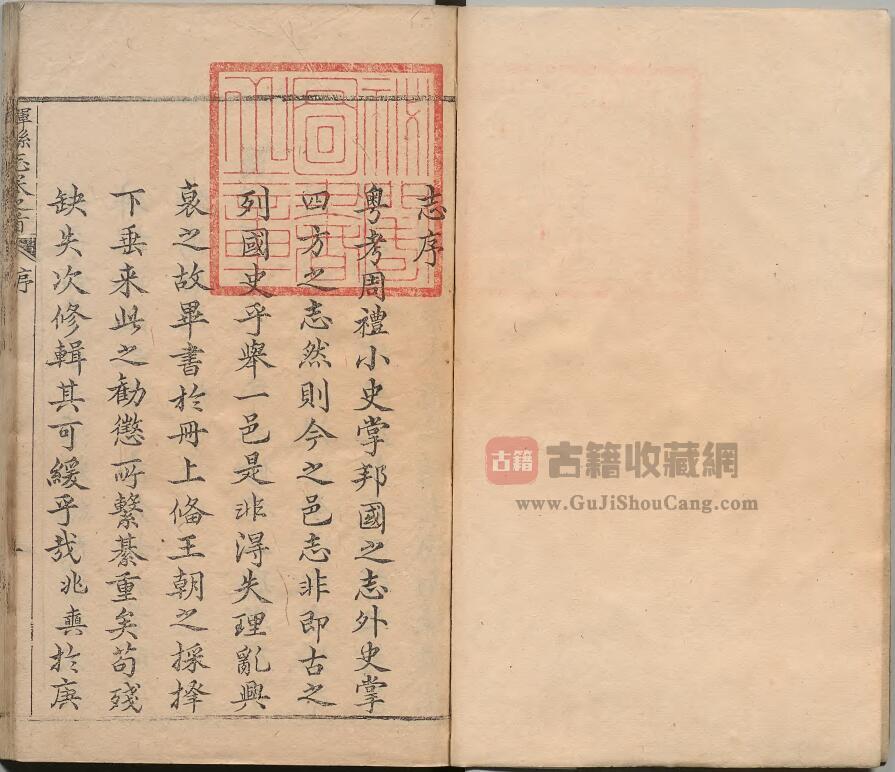 志序
粤考周禮小史掌邦國之志外史掌
四方之志然則今之邑志非即古之
列國史乎舉一邑是非得失理亂興
衰之故畢書於冊上備王朝之採擇
下垂来此之勸懲所繫綦重矣苟殘
缺失次修輯其可緩乎哉兆真於庚
輝縣志卷之首 序
古籍
古籍收藏網
www.GuJiShouCang.com